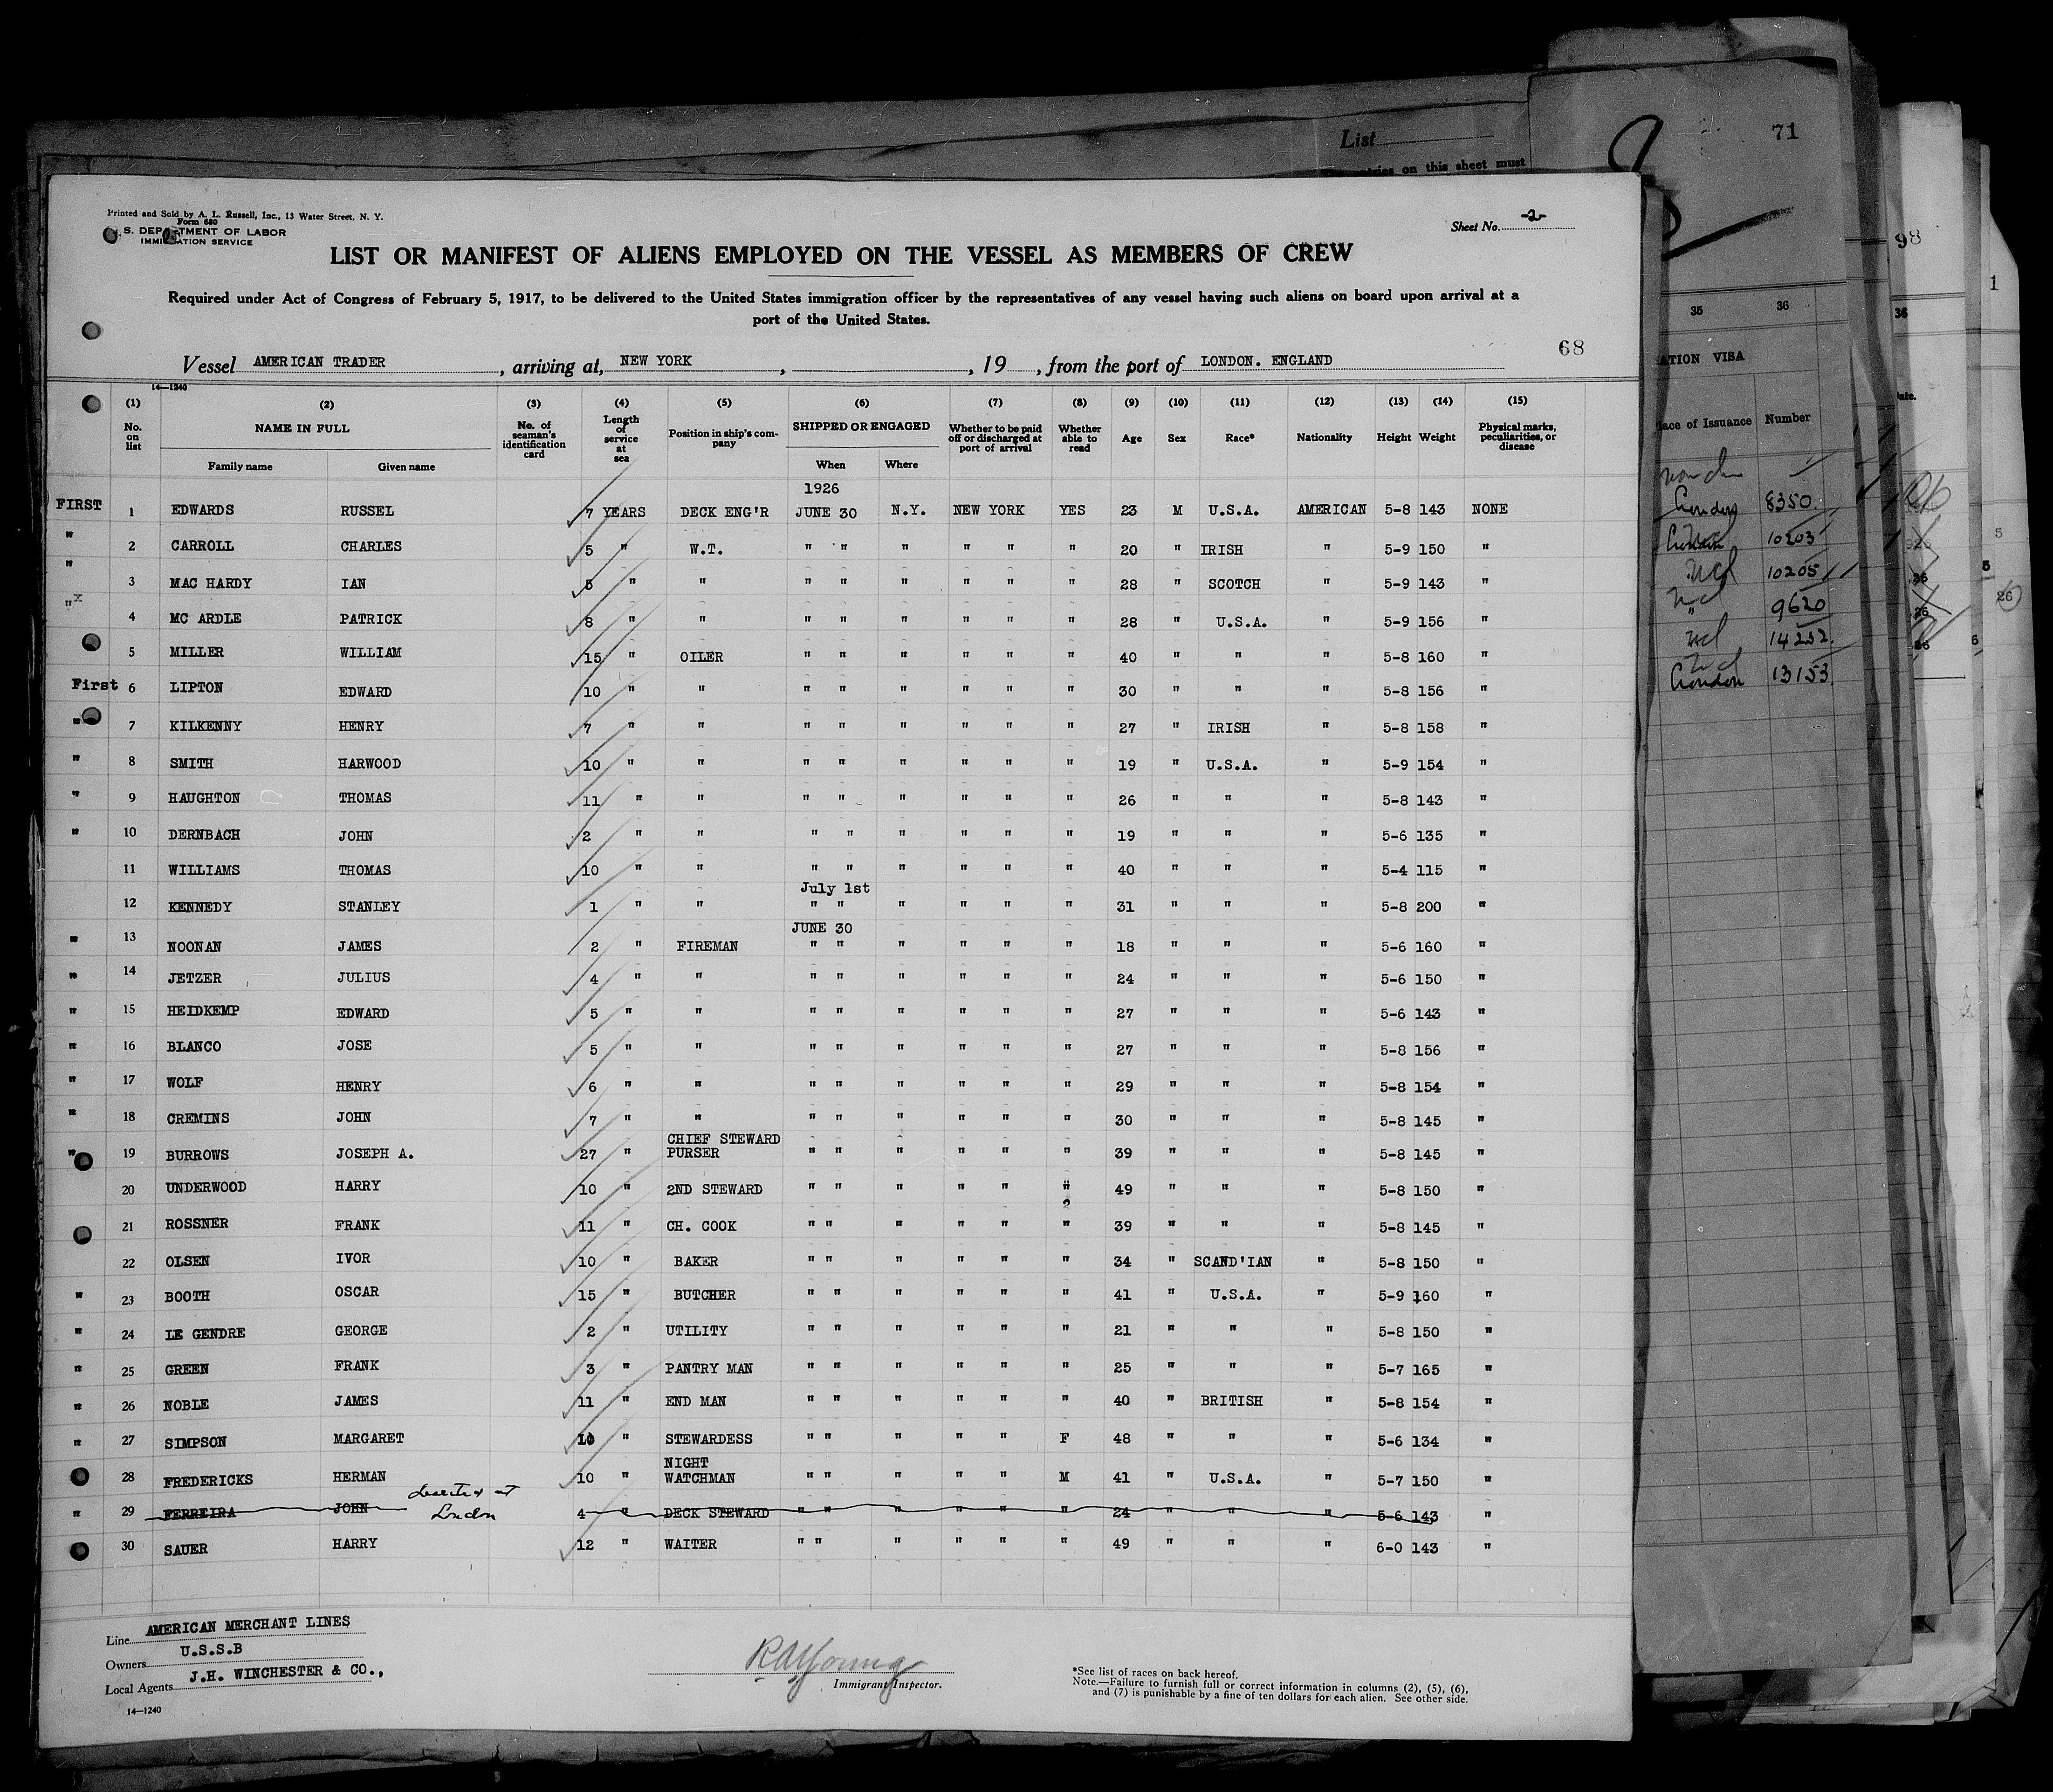 List
entries on this sheet must
71
98
1
Printed and Sold by A. L. Russell, Inc., 13 Water Street, N. Y.
Form 680
U. S. DEPARTMENT OF LABOR
IMMIGRATION SERVICE
Sheet No. -2-
LIST OR MANIFEST OF ALIENS EMPLOYED ON THE VESSEL AS MEMBERS OF CREW
Required under Act of Congress of February 5, 1917, to be delivered to the United States immigration officer by the representatives of any vessel having such aliens on board upon arrival at a
port of the United States.
68
Vessel AMERICAN TRADER, arriving at, NEW YORK, , 19 , from the port of LONDON. ENGLAND
14—1240
(1) (2) (3) (4) (5) (6) (7) (8) (9) (10) (11) (12) (13) (14) (15)
No. on list NAME IN FULL Family name Given name No. of seaman's identification card Length of service at sea Position in ship's company SHIPPED OR ENGAGED When Where Whether to be paid off or discharged at port of arrival Whether able to read Age Sex Race* Nationality Height Weight Physical marks, peculiarities, or disease
1926
FIRST 1 EDWARDS RUSSEL 7 YEARS DECK ENG'R JUNE 30 N.Y. NEW YORK YES 23 M U.S.A. AMERICAN 5-8 143 NONE
" 2 CARROLL CHARLES 5 " W.T. " " " " " " 20 " IRISH " 5-9 150 "
" 3 MAC HARDY IAN 5 " " " " " " " " 28 " SCOTCH " 5-9 143 "
"x 4 MC ARDLE PATRICK 8 " " " " " " " " 28 " U.S.A. " 5-9 156 "
5 MILLER WILLIAM 15 " OILER " " " " " " 40 " " " 5-8 160 "
First 6 LIPTON EDWARD 10 " " " " " " " " 30 " " " 5-8 156 "
" 7 KILKENNY HENRY 7 " " " " " " " " 27 " IRISH " 5-8 158 "
" 8 SMITH HARWOOD 10 " " " " " " " " 19 " U.S.A. " 5-9 154 "
" 9 HAUGHTON THOMAS 11 " " " " " " " " 26 " " " 5-8 143 "
" 10 DERNBACH JOHN 2 " " " " " " " " 19 " " " 5-6 135 "
11 WILLIAMS THOMAS 10 " " " " " " " " 40 " " " 5-4 115 "
July 1st
12 KENNEDY STANLEY 1 " " " " " " " " 31 " " " 5-8 200 "
JUNE 30
" 13 NOONAN JAMES 2 " FIREMAN " " " " " " 18 " " " 5-6 160 "
" 14 JETZER JULIUS 4 " " " " " " " " 24 " " " 5-6 150 "
" 15 HEIDKEMP EDWARD 5 " " " " " " " " 27 " " " 5-6 143 "
" 16 BLANCO JOSE 5 " " " " " " " " 27 " " " 5-8 156 "
" 17 WOLF HENRY 6 " " " " " " " " 29 " " " 5-8 154 "
" 18 CREMINS JOHN 7 " " " " " " " " 30 " " " 5-8 145 "
CHIEF STEWARD
" 19 BURROWS JOSEPH A. 27 " PURSER " " " " " " 39 " " " 5-8 145 "
20 UNDERWOOD HARRY 10 " 2ND STEWARD " " " " " " 49 " " " 5-8 150 "
21 ROSSNER FRANK 11 " CH. COOK " " " " " " 39 " " " 5-8 145 "
22 OLSEN IVOR 10 " BAKER " " " " " " 34 " SCAND'IAN " 5-8 150 "
" 23 BOOTH OSCAR 15 " BUTCHER " " " " " " 41 " U.S.A. " 5-9 160 "
" 24 LE GENDRE GEORGE 2 " UTILITY " " " " " " 21 " " " 5-8 150 "
" 25 GREEN FRANK 3 " PANTRY MAN " " " " " " 25 " " " 5-7 165 "
" 26 NOBLE JAMES 11 " END MAN " " " " " " 40 " BRITISH " 5-8 154 "
" 27 SIMPSON MARGARET 10 " STEWARDESS " " " " " F 48 " " " 5-6 134 "
NIGHT
28 FREDERICKS HERMAN 10 " WATCHMAN " " " " " M 41 " U.S.A. " 5-7 150 "
deserted at
" 29 FERREIRA JOHN London 4 " DECK STEWARD " " " " " " 24 " " " 5-6 143 "
30 SAUER HARRY 12 " WAITER " " " " " " 49 " " " 6-0 143 "
Line AMERICAN MERCHANT LINES
Owners U.S.S.B
Local Agents J.H. WINCHESTER & CO.,
14—1240
RAYoung
Immigrant Inspector.
*See list of races on back hereof.
Note.—Failure to furnish full or correct information in columns (2), (5), (6),
and (7) is punishable by a fine of ten dollars for each alien. See other side.
35 36
36
ATION VISA
Place of Issuance Number
Date.
London 8350
10203
10205
9620
14232
London 13153
5
26
6